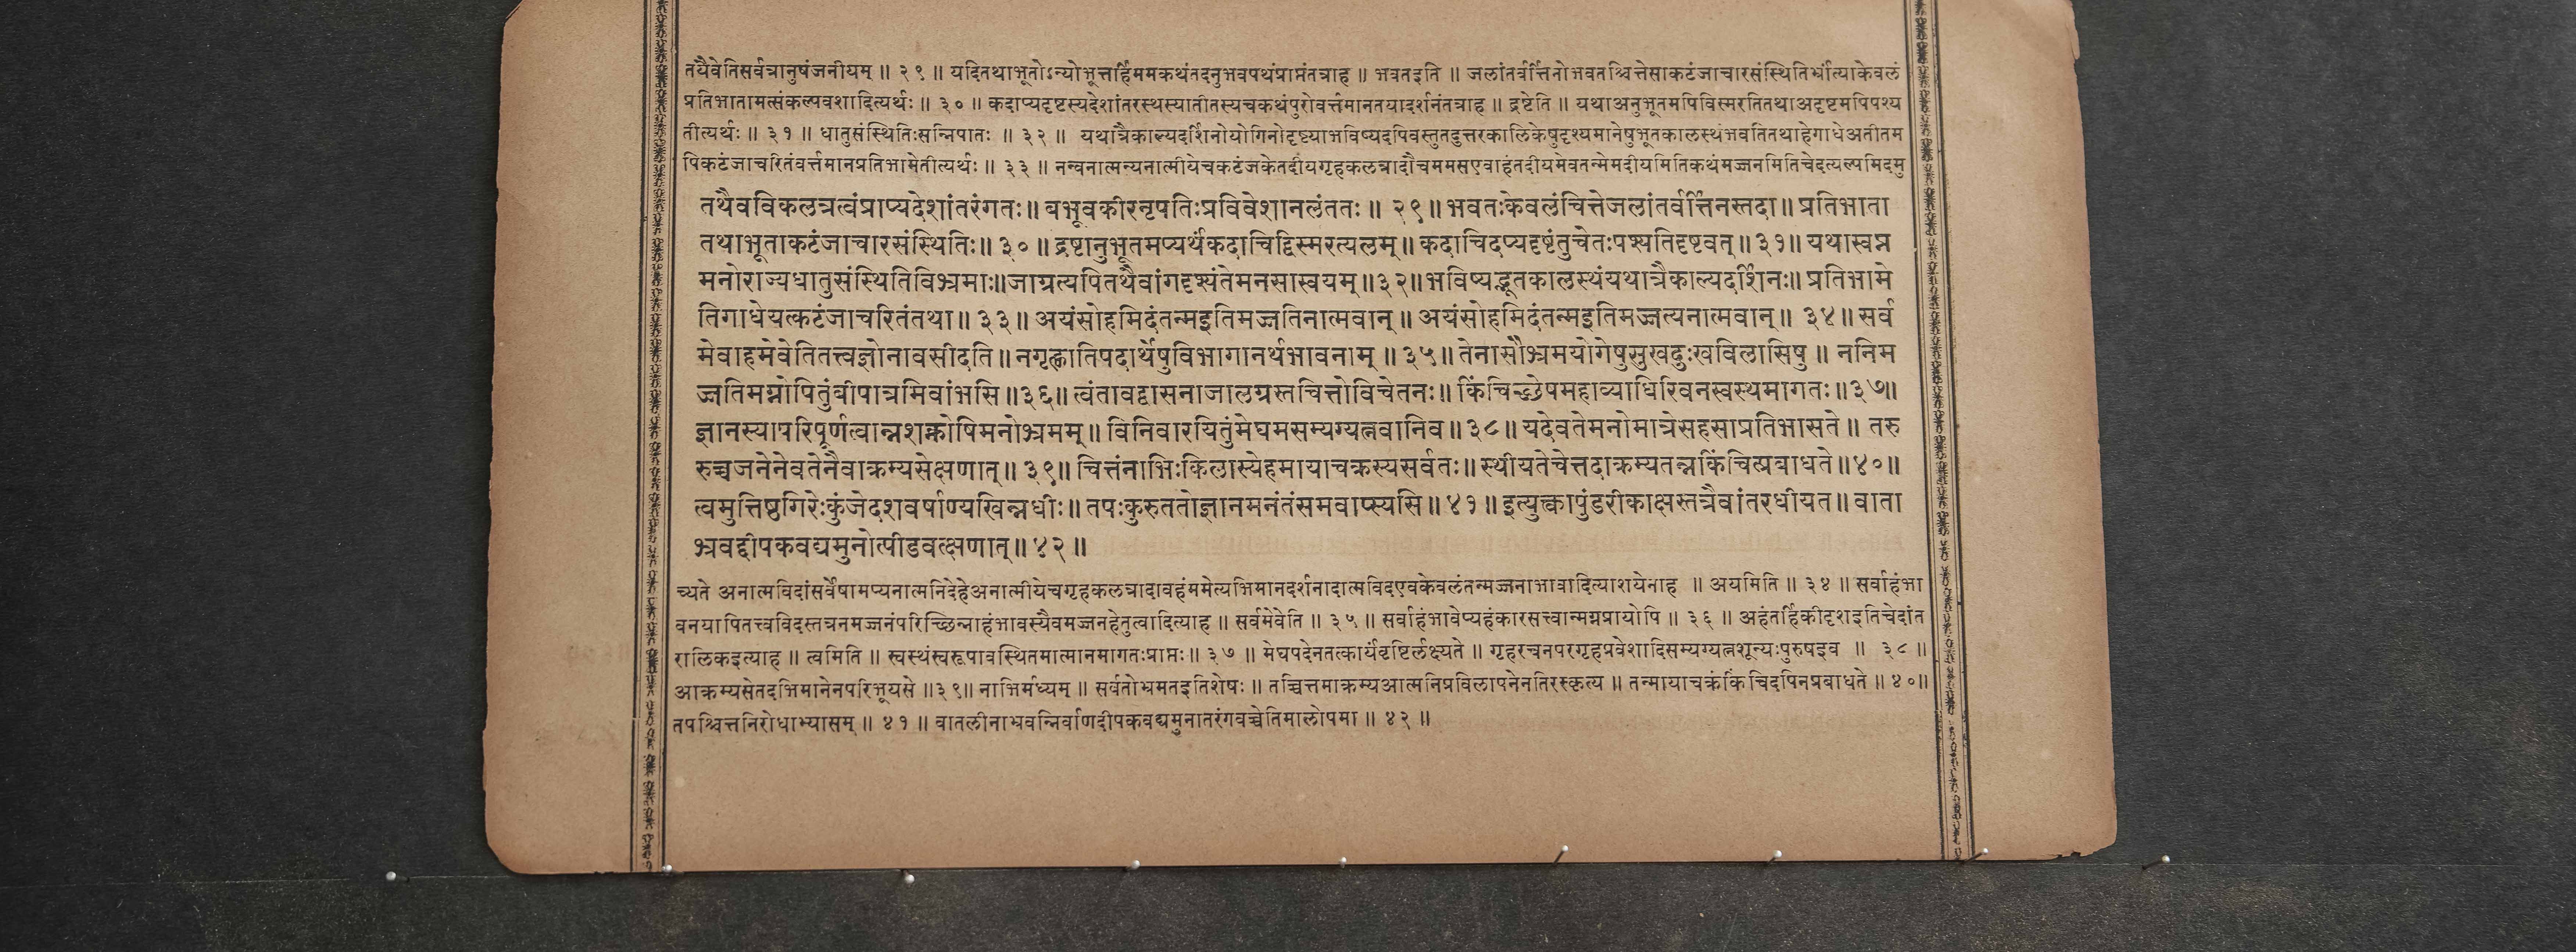 तथैवेतिसर्वत्रानुषंजनीयम् ॥ २९ ॥ यदितथाभूतोऽन्योभूत्तर्हिममकथंतदनुभवपथंप्राप्तंतत्राह ॥ भवतइति ॥ जलांतर्वर्त्तिनोभवतश्चित्तेसाकटंजाचारसंस्थितिर्भ्रांत्याकेवलं
प्रतिभातामत्संकल्पवशादित्यर्थः ॥ ३० ॥ कदाप्यदृष्टस्यदेशांतरस्थस्यातीतस्यचकथंपुरोवर्त्तमानतयादर्शनंतत्राह ॥ द्रष्टेति ॥ यथाअनुभूतमपिविस्मरतितथाअदृष्टमपिपश्य
तीत्यर्थः ॥ ३१ ॥ धातुसंस्थितिःसन्निपातः ॥ ३२ ॥ यथात्रैकाल्यदर्शिनोयोगिनोदृष्ट्याभविष्यदपिवस्तुतदुत्तरकालिकेषुदृश्यमानेषुभूतकालस्थंभवतितथाहेगाधेअतीतम
पिकटंजाचरितंवर्त्तमानप्रतिभामेतीत्यर्थः ॥ ३३ ॥ नन्वनात्मन्यनात्मीयेचकटंजकेतदीयगृहकलत्रादौचममसएवाहंतदीयमेवतन्मेमदीयमितिकथंमज्जनमितिचेदत्यल्पमिदमु
तथैवविकलत्रत्वंप्राप्यदेशांतरंगतः॥ बभूवकीरनृपतिःप्रविवेशानलंततः ॥ २९॥ भवतःकेवलंचित्तेजलांतर्वर्त्तिनस्तदा॥ प्रतिभाता
तथाभूताकटंजाचारसंस्थितिः॥ ३० ॥ द्रष्टानुभूतमप्यर्थंकदाचिद्विस्मरत्यलम्॥ कदाचिदप्यदृष्टंतुचेतःपश्यतिदृष्टवत्॥ ३१॥ यथास्वप्न
मनोराज्यधातुसंस्थितिविभ्रमाः॥जाग्रत्यपितथैवांगदृश्यंतेमनसास्वयम्॥३२॥भविष्यद्भूतकालस्थंयथात्रैकाल्यदर्शिनः॥ प्रतिभामे
तिगाधेयत्कटंजाचरितंतथा॥ ३३॥ अयंसोहमिदंतन्मइतिमज्जतिनात्मवान्॥ अयंसोहमिदंतन्मइतिमज्जत्यनात्मवान्॥ ३४॥ सर्व
मेवाहमेवेतितत्त्वज्ञोनावसीदति॥ नगृह्णातिपदार्थेषुविभागानर्थभावनाम् ॥ ३५॥ तेनासौभ्रमयोगेषुसुखदुःखविलासिषु ॥ ननिम
ज्जतिमग्नोपितुंबीपात्रमिवांभसि॥३६॥ त्वंतावद्वासनाजालग्रस्तचित्तोविचेतनः॥ किंचिच्छेषमहाव्याधिरिवनस्वस्थमागतः॥३७॥
ज्ञानस्यापरिपूर्णत्वान्नशक्नोषिमनोभ्रमम्॥ विनिवारयितुंमेघमसम्यग्यत्नवानिव॥३८॥ यदेवतेमनोमात्रेसहसाप्रतिभासते॥ तरु
रुच्चजनेनेवतेनैवाक्रम्यसेक्षणात्॥ ३९॥ चित्तंनाभिःकिलास्येहमायाचक्रस्यसर्वतः॥ स्थीयतेचेत्तदाक्रम्यतन्नकिंचित्प्रबाधते॥४०॥
त्वमुत्तिष्ठगिरेःकुंजेदशवर्षाण्यखिन्नधीः॥ तपःकुरुततोज्ञानमनंतंसमवाप्स्यसि॥ ४१॥ इत्युक्त्वापुंडरीकाक्षस्तत्रैवांतरधीयत॥ वाता
भ्रवद्दीपकवद्यमुनोत्पीडवत्क्षणात्॥ ४२॥
च्यते अनात्मविदांसर्वेषामप्यनात्मनिदेहेअनात्मीयेचगृहकलत्रादावहंममेत्यभिमानदर्शनादात्मविदएवकेवलंतन्मज्जनाभावादित्याशयेनाह ॥ अयमिति ॥ ३४ ॥ सर्वाहंभा
वनयापितत्त्वविदस्तत्रनमज्जनंपरिच्छिन्नाहंभावस्यैवमज्जनहेतुत्वादित्याह ॥ सर्वमेवेति ॥ ३५ ॥ सर्वाहंभावेप्यहंकारसत्त्वान्मग्नप्रायोपि ॥ ३६ ॥ अहंतर्हिकीदृशइतिचेदांत
रालिकइत्याह ॥ त्वमिति ॥ स्वस्थंस्वरूपावस्थितमात्मानमागतःप्राप्तः॥ ३७ ॥ मेघपदेनतत्कार्यंवृष्टिर्लक्ष्यते ॥ गृहरचनपरगृहप्रवेशादिसम्यग्यत्नशून्यःपुरुषइव ॥ ३८ ॥
आक्रम्यसेतदभिमानेनपरिभूयसे ॥३९॥ नाभिर्मध्यम् ॥ सर्वतोभ्रमतइतिशेषः ॥ तच्चित्तमाक्रम्यआत्मनिप्रविलापनेनतिरस्कृत्य ॥ तन्मायाचक्रंकिंचिदपिनप्रबाधते ॥ ४०॥
तपश्चित्तनिरोधाभ्यासम् ॥ ४१ ॥ वातलीनाभ्रवन्निर्वाणदीपकवद्यमुनातरंगवच्चेतिमालोपमा ॥ ४२ ॥